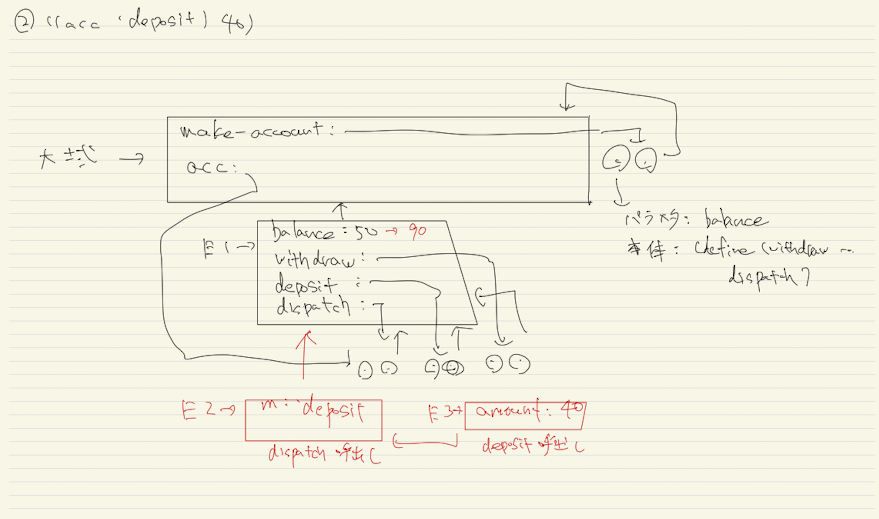 ② ((acc 'deposit) 40)
make-account:
大域 →
acc:
パラメタ: balance
本体: (define (withdraw …
dispatch)
E1→
balance: 50 → 90
withdraw:
deposit:
dispatch:
E2→
m: 'deposit
E3→
amount: 40
dispatch 呼出し
deposit 呼出し